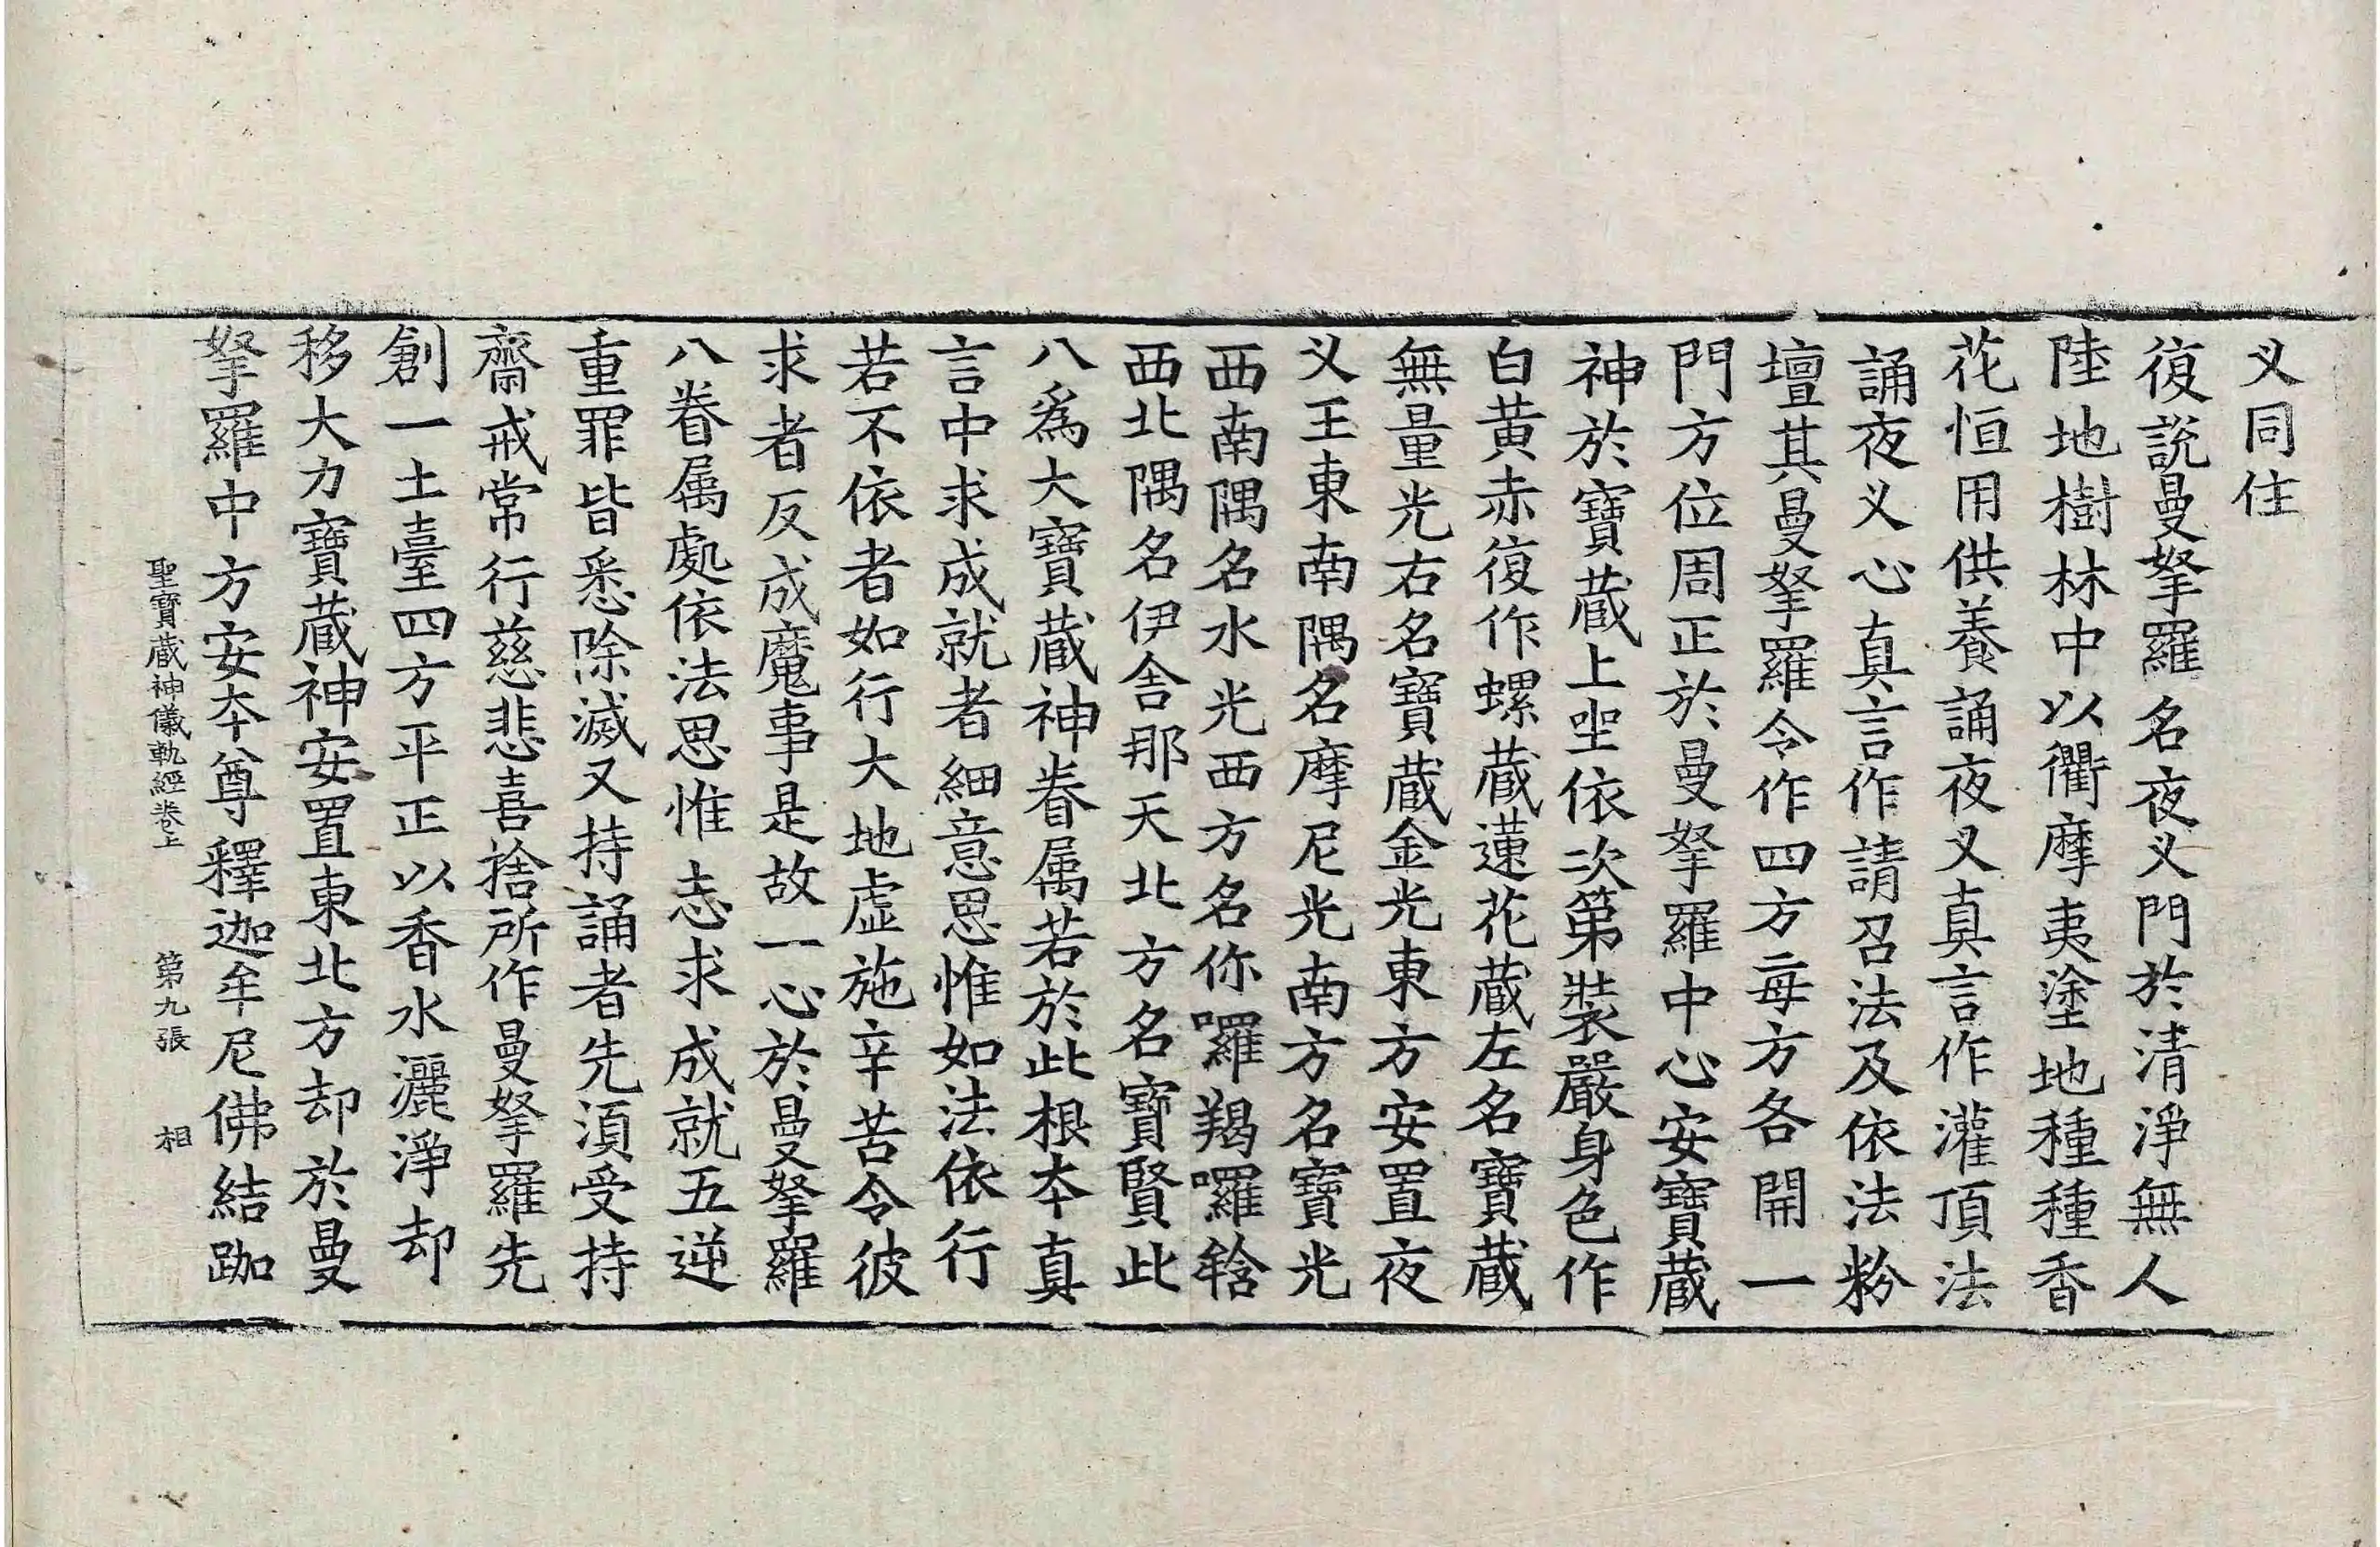 义同住
復說曼拏羅名夜义門於清淨無人
陸地樹林中以衢摩夷塗地種種香
花恒用供養誦夜义真言作灌頂法
誦夜义心真言作請召法及依法粉
壇其曼拏羅令作四方每方各開一
門方位周正於曼拏羅中心安寶藏
神於寶藏上坐依次第裝嚴身色作
白黄赤復作螺藏蓮花藏左名寶藏
無量光右名寶藏金光東方安置夜
义王東南隅名摩尼光南方名寶光
西南隅名水光西方名你囉羯囉䭇
西北隅名伊舍那天北方名寶賢此
八爲大寶藏神眷属若於此根夲真
言中求成就者細意思惟如法依行
若不依者如行大地虚施辛苦令彼
求者反成魔事是故一心於曼拏羅
八眷属處依法思惟志求成就五逆
重罪皆悉除滅又持誦者先湏受持
齋戒常行慈悲喜捨所作曼拏羅先
創一土臺四方平正以香水灑淨却
移大力寶藏神安置東北方却於曼
拏羅中方安夲尊釋迦牟尼佛結跏
聖寶藏神儀軌經卷上 第九張 相